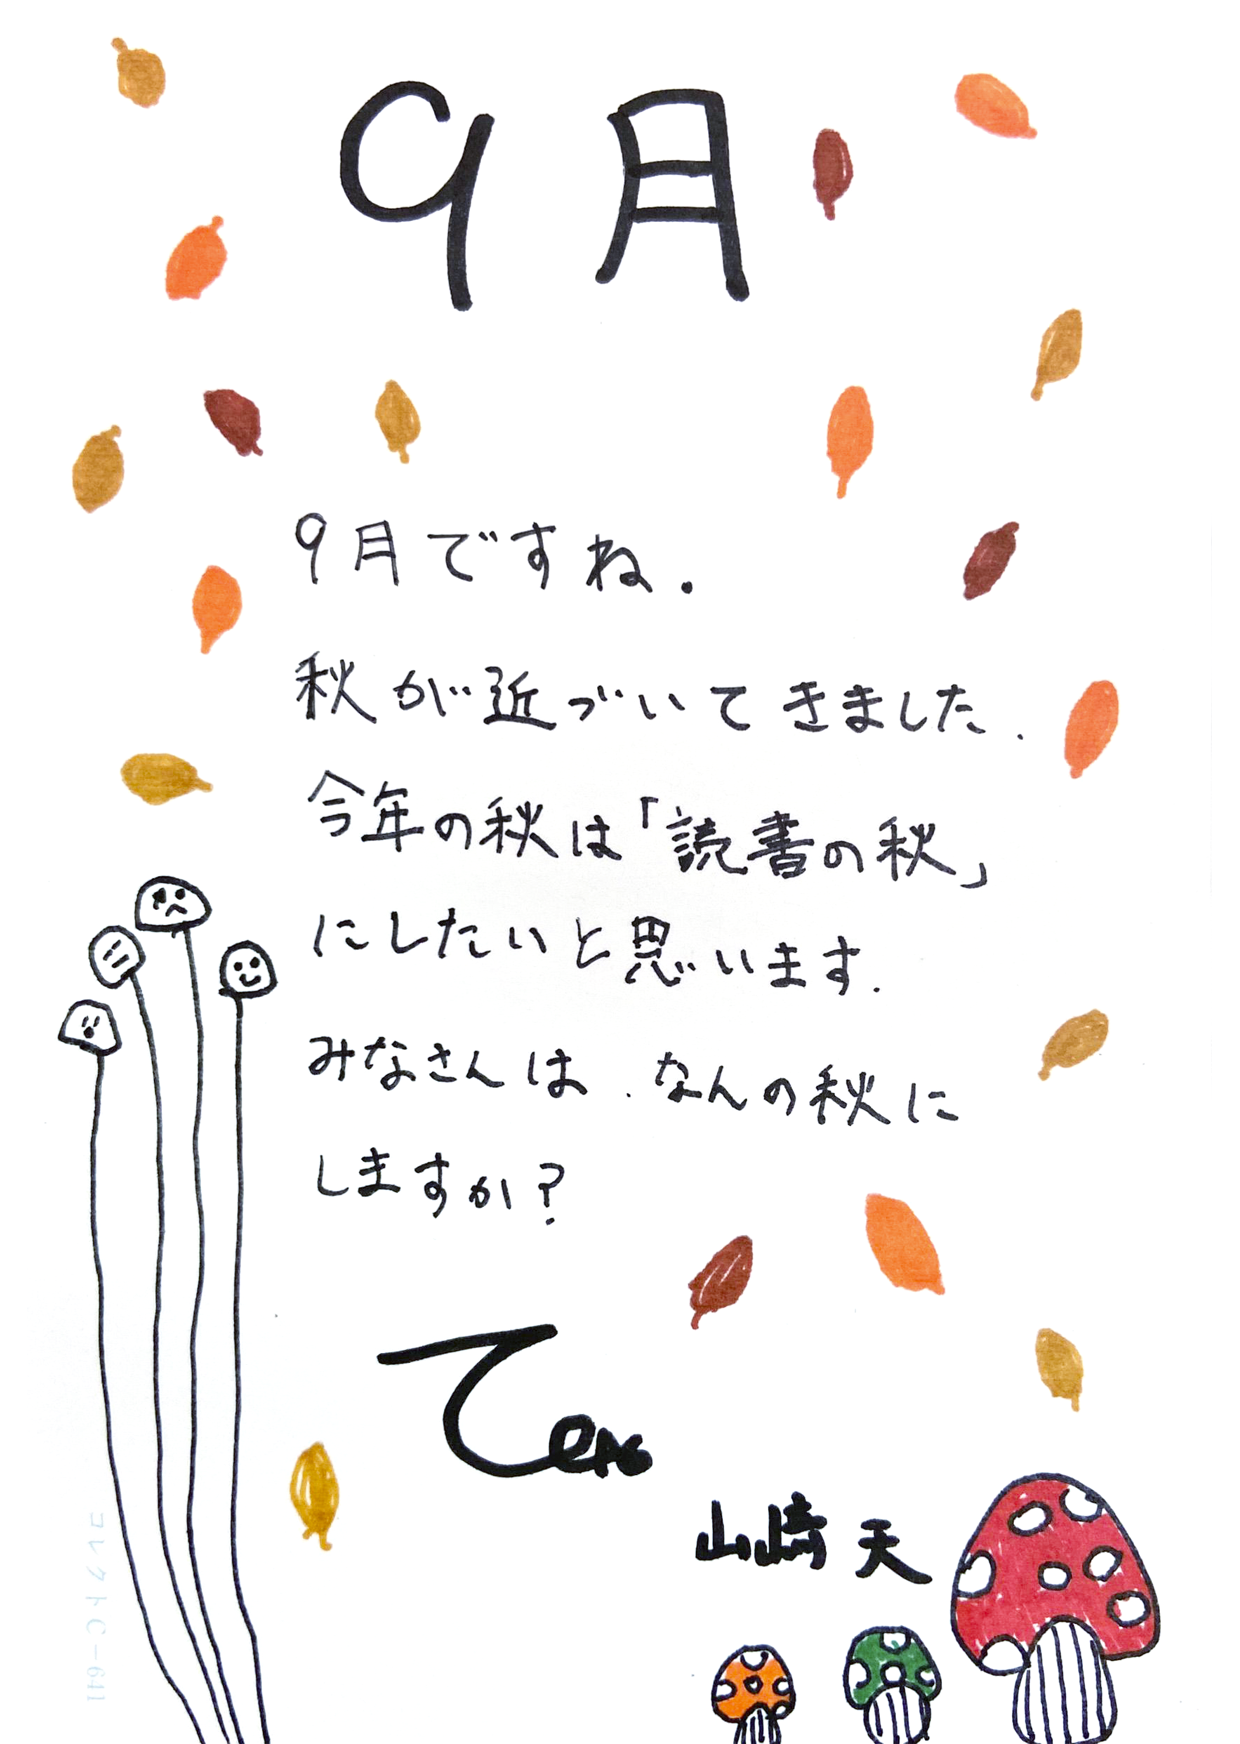 9月
9月ですね.
秋が近づいてきました.
今年の秋は「読書の秋」
にしたいと思います.
みなさんは.なんの秋に
しますか?
山﨑天
コレクトC-641